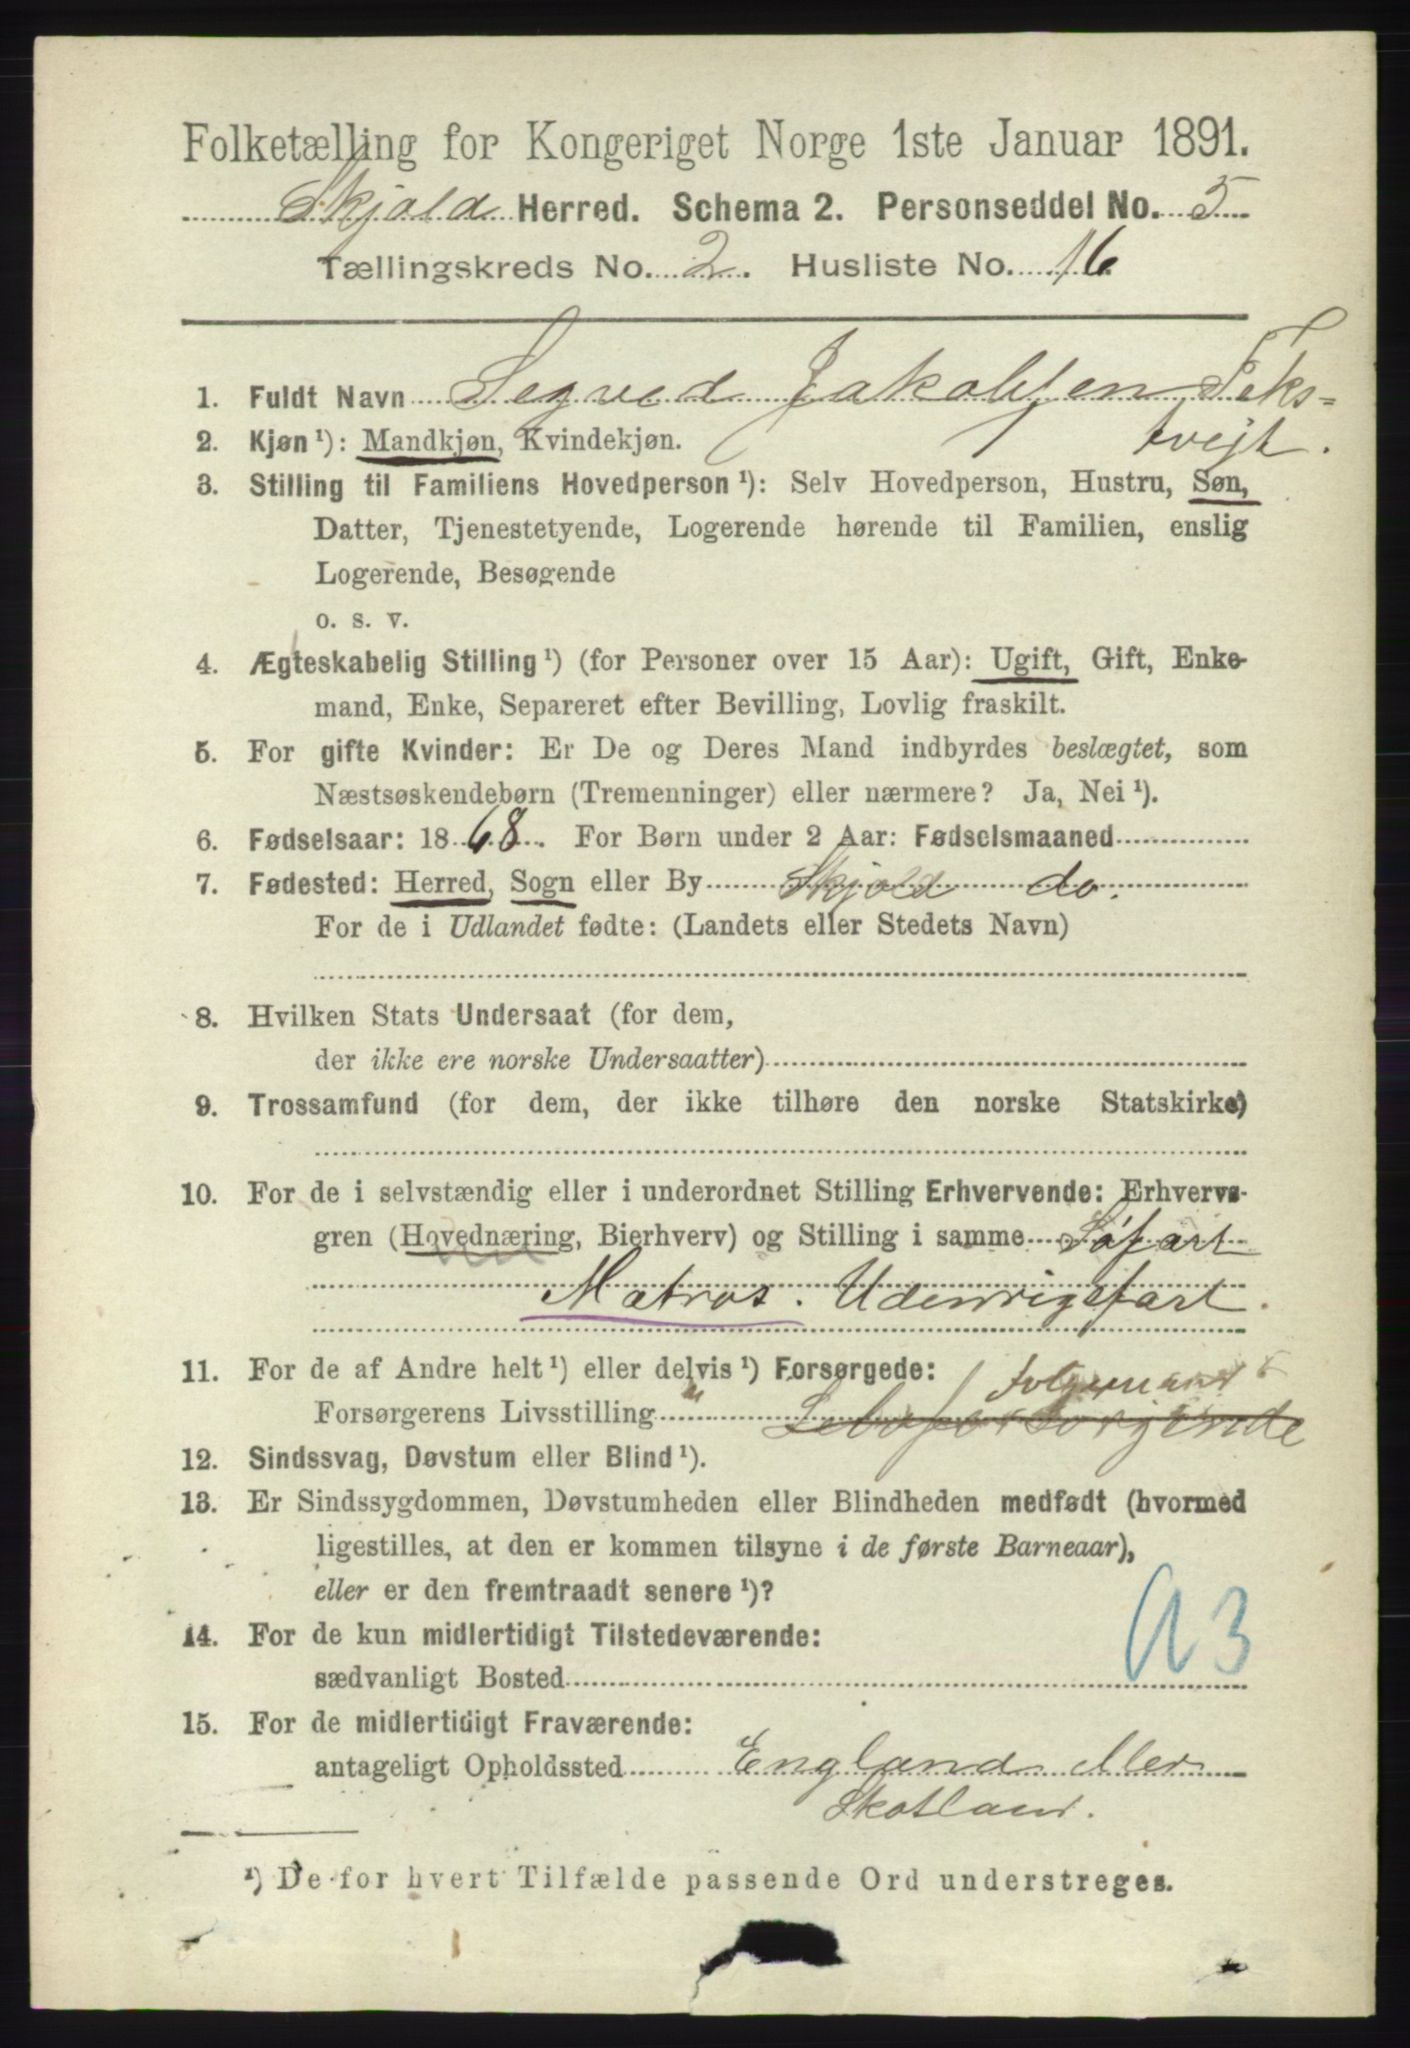 Folketælling for Kongeriget Norge 1ste Januar 1891.
Skjold Herred. Schema 2. Personseddel No. 5
Tællingskreds No. 2. Husliste No. 16
1. Fuldt Navn Segved Jakobsen Teks=
tvejt.
2. Kjøn ¹): Mandkjøn, Kvindekjøn.
3. Stilling til Familiens Hovedperson ¹): Selv Hovedperson, Hustru, Søn,
Datter, Tjenestetyende, Logerende hørende til Familien, enslig
Logerende, Besøgende
o. s. v.
4. Ægteskabelig Stilling ¹) (for Personer over 15 Aar): Ugift, Gift, Enke-
mand, Enke, Separeret efter Bevilling, Lovlig fraskilt.
5. For gifte Kvinder: Er De og Deres Mand indbyrdes beslægtet, som
Næstsøskendebørn (Tremenninger) eller nærmere? Ja, Nei ¹).
6. Fødselsaar: 1868. For Børn under 2 Aar: Fødselsmaaned
7. Fødested: Herred, Sogn eller By Skjold do.
For de i Udlandet fødte: (Landets eller Stedets Navn)
8. Hvilken Stats Undersaat (for dem,
der ikke ere norske Undersaatter)
9. Trossamfund (for dem, der ikke tilhøre den norske Statskirke)
10. For de i selvstændig eller i underordnet Stilling Erhvervende: Erhvervs-
gren (Hovednæring, Bierhverv) og Stilling i samme Söfart
Matros. Udenrigsfart.
11. For de af Andre helt ¹) eller delvis ¹) Forsørgede:
Forsørgerens Livsstilling
12. Sindssvag, Døvstum eller Blind ¹).
13. Er Sindssygdommen, Døvstumheden eller Blindheden medfødt (hvormed
ligestilles, at den er kommen tilsyne i de første Barneaar),
eller er den fremtraadt senere ¹)?
14. For de kun midlertidigt Tilstedeværende:
sædvanligt Bosted
15. For de midlertidigt Fraværende:
antageligt Opholdssted England eller
Skotland.
¹) De for hvert Tilfælde passende Ord understreges.